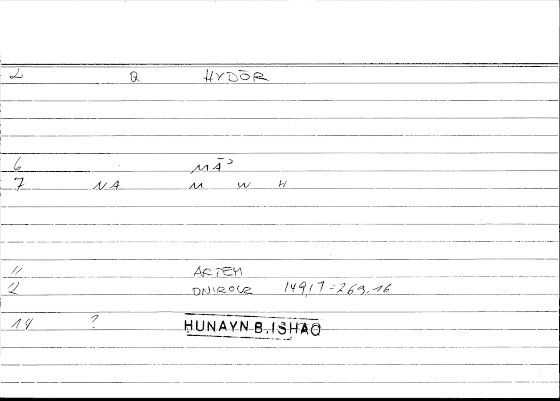 2 Q HYDŌR
6 MĀʾ
7 NA M W H
11 ARTEM
12 ONIROCR 149,17=269,16
14 ? HUNAYN B. ISHAQ